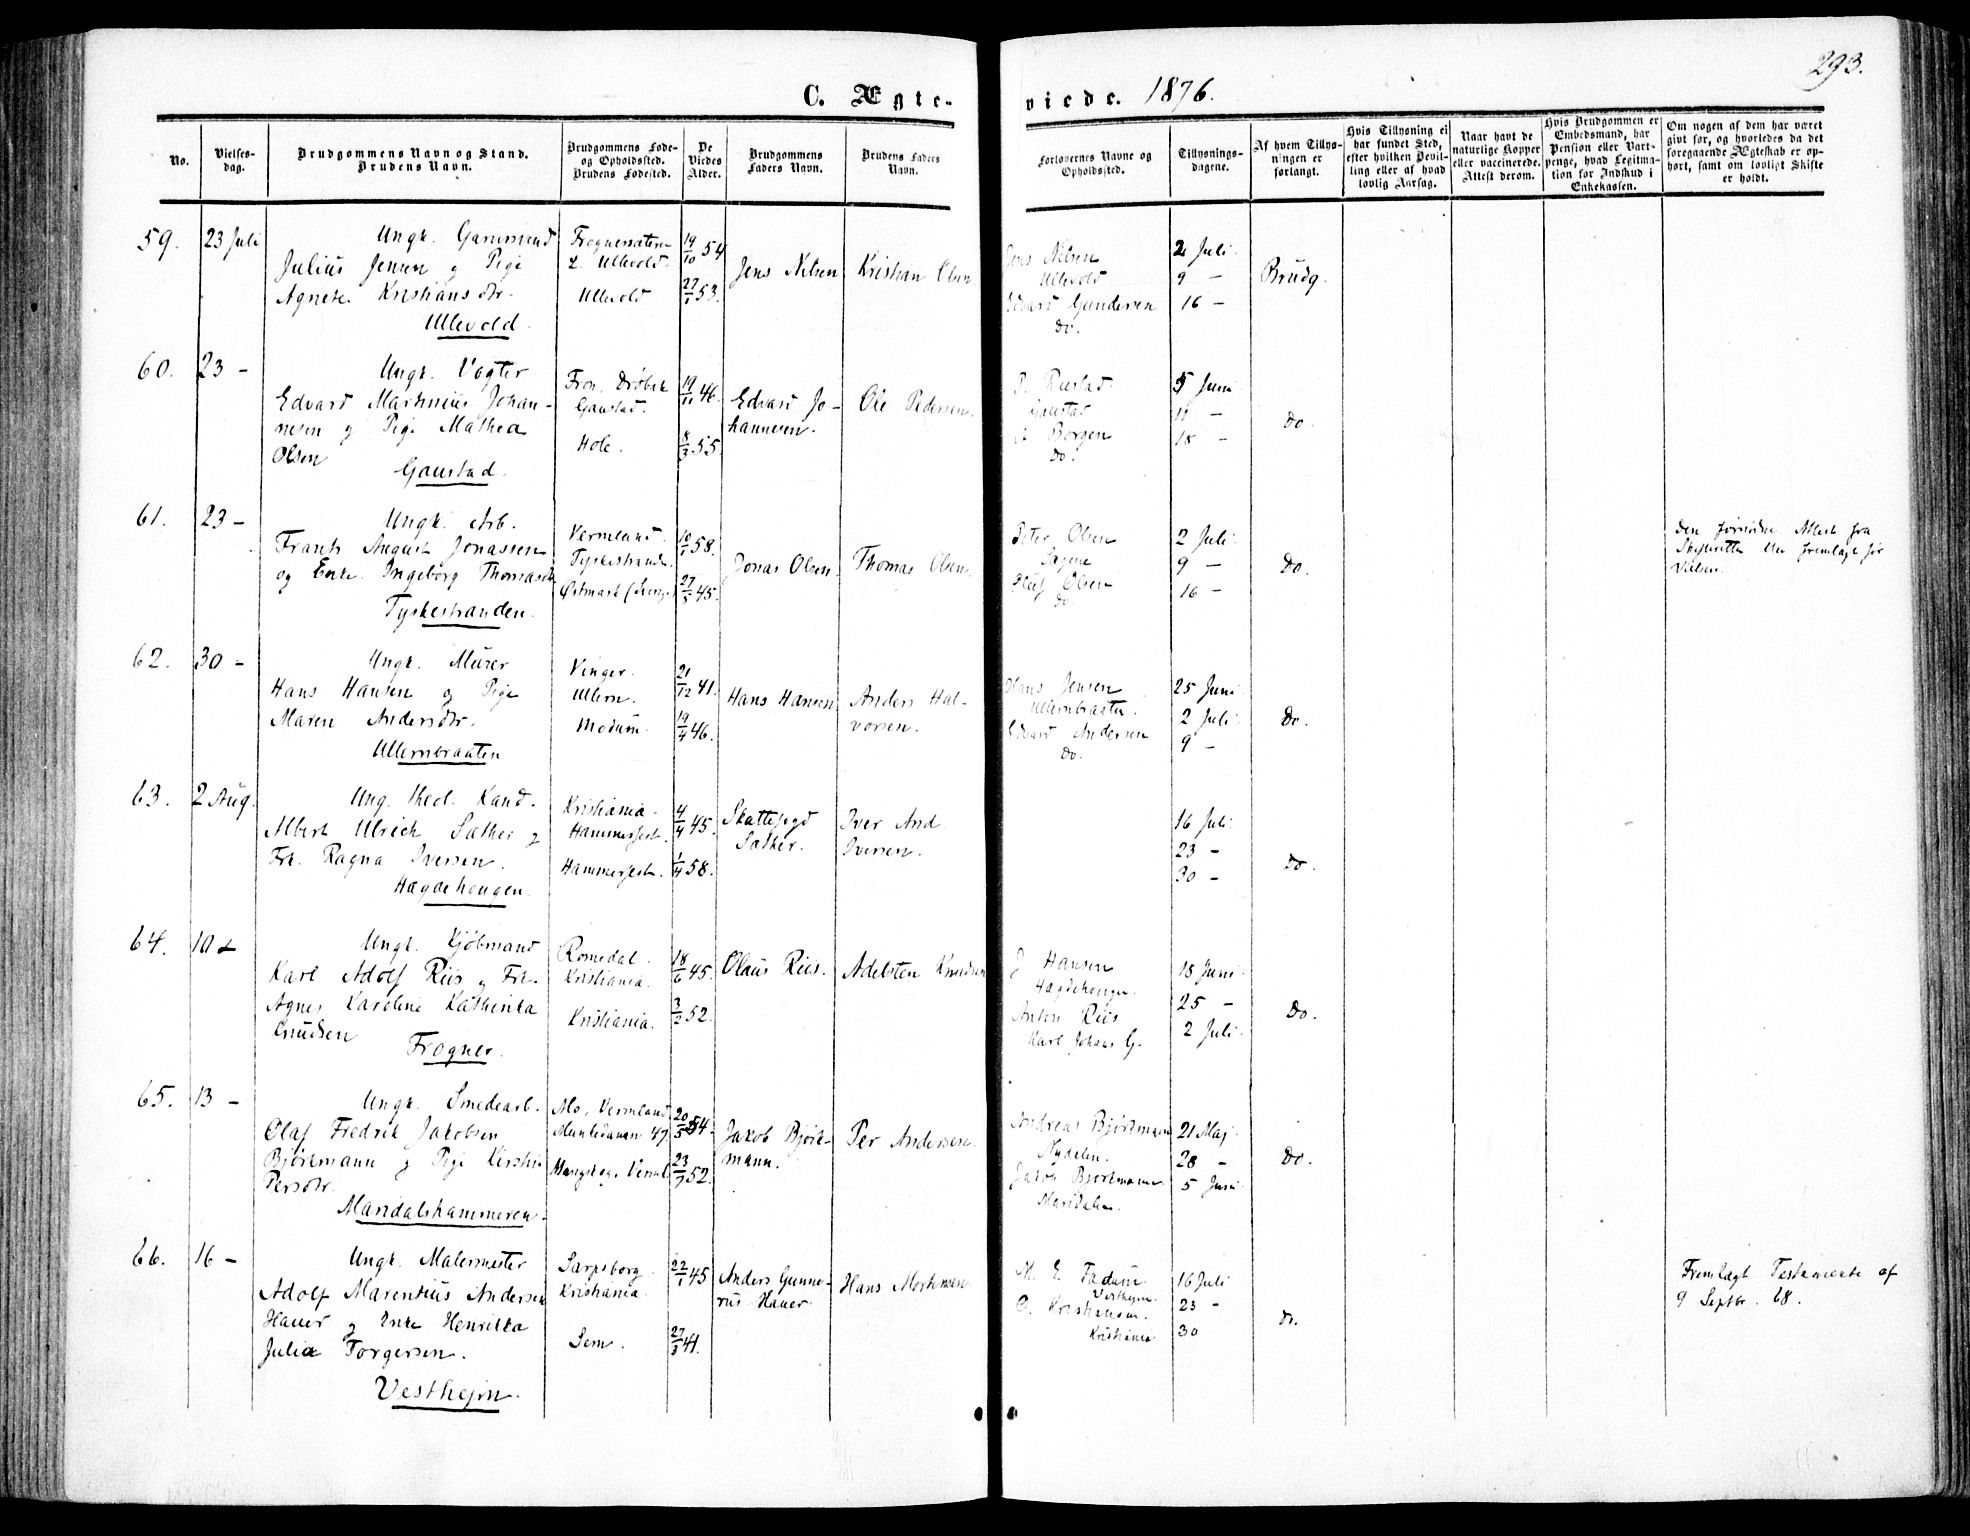 293.
C. Ægte- viede. 1876.
No.
Vielses-
dag.
Brudgommens Navn og Stand.
Brudens Navn.
Brudgommens Føde-
og Opholdssted.
Brudens Fødested.
De
Viedes
Alder.
Brudgommens
Faders Navn.
Brudens Faders
Navn.
Forlovernes Navne og
Opholdssted.
Tillysnings-
dagene.
Af hvem Tillys-
ningen er
forlangt.
Hvis Tillysning ei
har fundet Sted,
efter hvilken Bevil-
ling eller af hvad
lovlig Aarsag.
Naar havt de
naturlige Kopper
eller vaccinerede.
Attest derom.
Hvis Brudgommen er
Embedsmand, har
Pension eller Vart-
penge, hvad Legitima-
tion for Indskud i
Enkekassen.
Om nogen af dem har været
gift før, og hvorledes da det
foregaaende Ægteskab er op-
hørt, samt om lovligt Skifte
er holdt.
59. 23 Juli
Ungk. Gaardmand
Julius Jensen og Pige
Agnete Kristiansdtr.
Ullevold.
L. Ullevold.
Ullevold
19/10 54
27/1 53.
Jens Nilsen
Kristian Olsen
Jens Nilsen
Ullevold
Edvard Gundersen
do.
2 Juli.
9 -
16 -
Brudg.
60. 23 -
Ungk. Vogter
Edvard Martinius Johan-
nesen og Pige Mathea
Olsen
Gaustad.
Fron, Drøbak
Gaustad.
Hole.
19/11 46.
8/3 55.
Edvard Jo-
hannesen.
Ole Pedersen.
P. Rustad.
Gaustad
Borgen
do.
5 Juni
11 -
18 -
do.
61. 23 -
Ungk. Arb.
Frants August Jonassen
og Enke Ingeborg Thomasdtr
Tyskestranden.
Vermland.
Tyskestranden.
Østmark (Sverige)
10/1 58.
27/5 45.
Jonas Olsen.
Thomas Olsen.
Peter Olsen
Sagene
Oluf Olsen
do
2 Juli.
9 -
16 -
do.
Den fornødne Attest fra
Skifteretten blev fremlagt før
Vielsen.
62. 30 -
Ungk. Murer
Hans Hansen og Pige
Maren Andersdtr.
Ullernbraaten
Vinger.
Ullern.
Modum.
21/12 41.
19/4 46.
Hans Hansen
Anders Hal-
vorsen.
Hans Jensen
Ullernbraaten.
Edvard Andersen
do.
25 Juni
2 Juli.
9 -
do.
63. 2 Aug.
Ung. theol. Kand.
Albert Ulrich Sæther og
Frk. Ragna Iversen.
Hægdehougen.
Kristiania.
Hammerfest.
Hammerfest.
4/4 45.
1/4 58.
Skattefogd
Sæther.
Iver And.
Iversen.
16 Juli
23 -
30 -
do.
64. 10 -
Ungk. Kjøbmand
Karl Adolf Riis og Frk.
Agnes Karoline Kathinka
Knudsen
Frogner.
Romedal.
Kristiania.
Kristiania.
18/6 45.
3/2 52.
Olaus Riis.
Adelsten Knudsen
J. Hansen
Hægdehougen.
Anton Riis
Karl Johans G.
18 Juni
25 -
2 Juli.
do.
65. 13 -
Ungk. Smedearb.
Olaf Fredrik Jakobsen
Bjørkmann og Pige Kirstin
Persdtr.
Maridalshammeren.
Als, Vermland
Mangskog, Verml.
20/5 54.
23/7 52.
Jakob Bjørk-
mann.
Per Andersen.
Andreas Bjørkmann
Nydalen.
Jakob Bjørkmann
Maridalen.
21 Maj.
28 -
5 Juni
do.
66. 16 -
Ungk. Malermester
Adolf Marentius Andersen
Hauer og Enke Henrikka
Julia Torgersen.
Vesthejm.
Sarpsborg.
Kristiania.
Sem.
22/1 45
27/3 41.
Anders Gunne-
rus Hauer.
Hans Mortensen
M. E. Fadum
Vesthejm.
C. Kristiansen.
Kristiania.
16 Juli
23 -
30
do.
Fremlagt Testamente af
9 Septbr. 68.